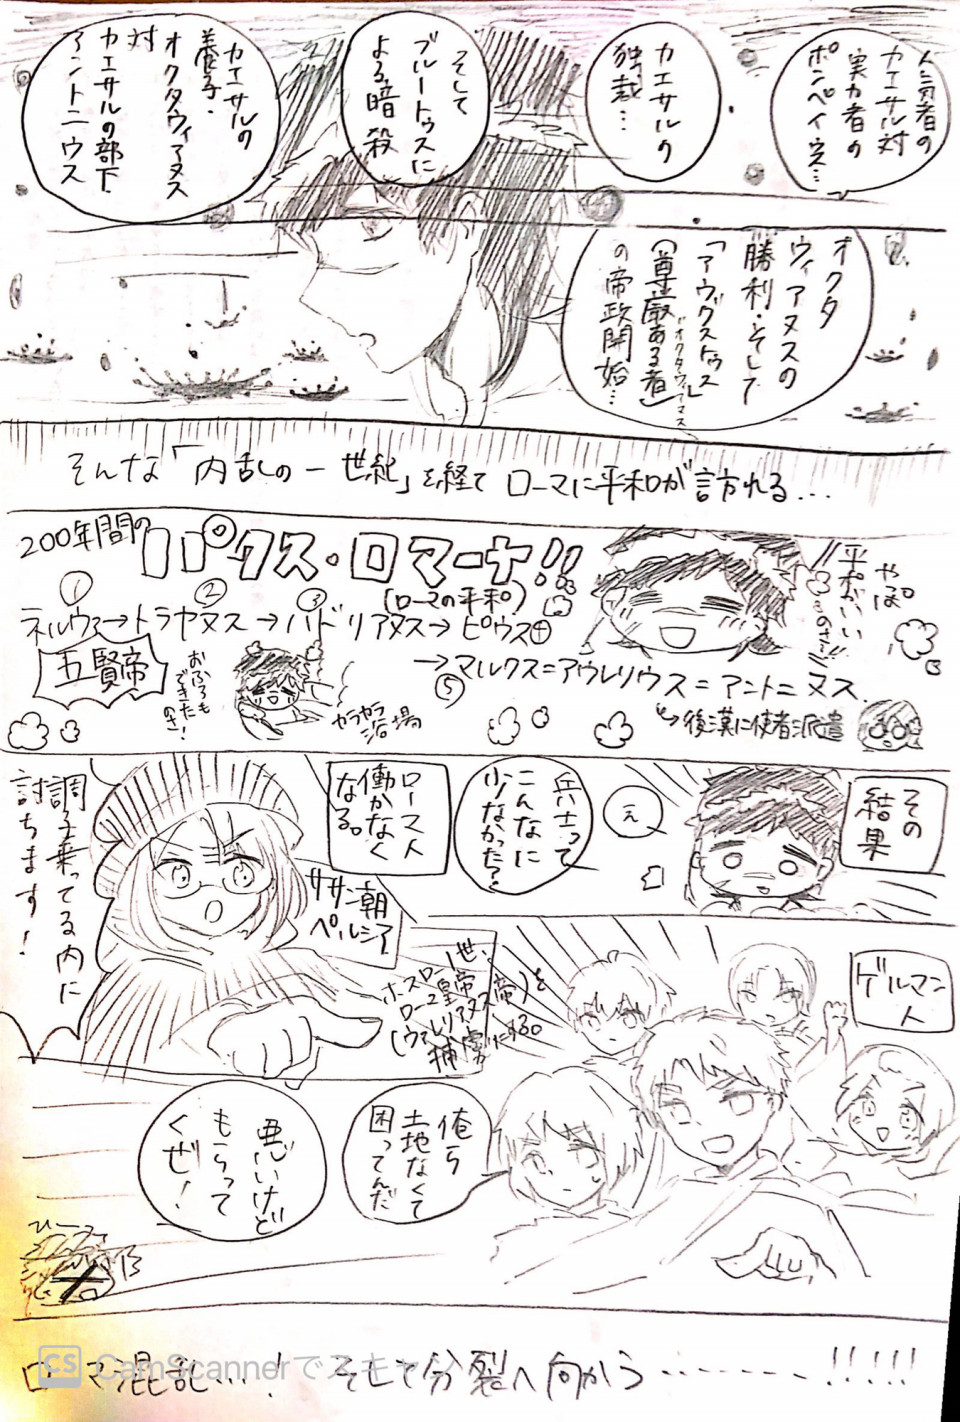 人気者の
カエサル対
実力者の
ポンペイウス…
カエサルの
独裁…
そして
ブルートゥスに
よる暗殺
カエサルの
養子・
オクタウィアヌス
対
カエサルの部下
アントニウス
オクタ
ウィアヌスの
勝利・そして
「アウグストゥス」
(尊厳ある者)
オクタウィアヌス
の帝政開始…
そんな「内乱の一世紀」を経てローマに平和が訪れる…
200年間の
パクス・ロマーナ!!
(ローマの平和)
やっぱ
平和がいい
のさ!!
① ② ③
ネルウァ→トラヤヌス→ハドリアヌス→ピウス④
→マルクス=アウレリウス=アントニヌス
⑤
五賢帝
おふろも
できた
のさ!
カラカラ
浴場
後漢に使者派遣
その
結果
え
兵士って
こんなに
少なかった?
ローマ人
働かなく
なる。
調子乗ってる内に
討ちます!
ササン朝
ペルシア
ホスロー1世、
ローマ皇帝
(ウァレリアヌス帝)を
捕虜にする。
ゲルマン
人
俺ら
土地なくて
困ってんだ
悪いけど
もらって
くぜ!
ローマ混乱…! そして分裂へ向かう………!!!!!
CS CamScannerでスキャン